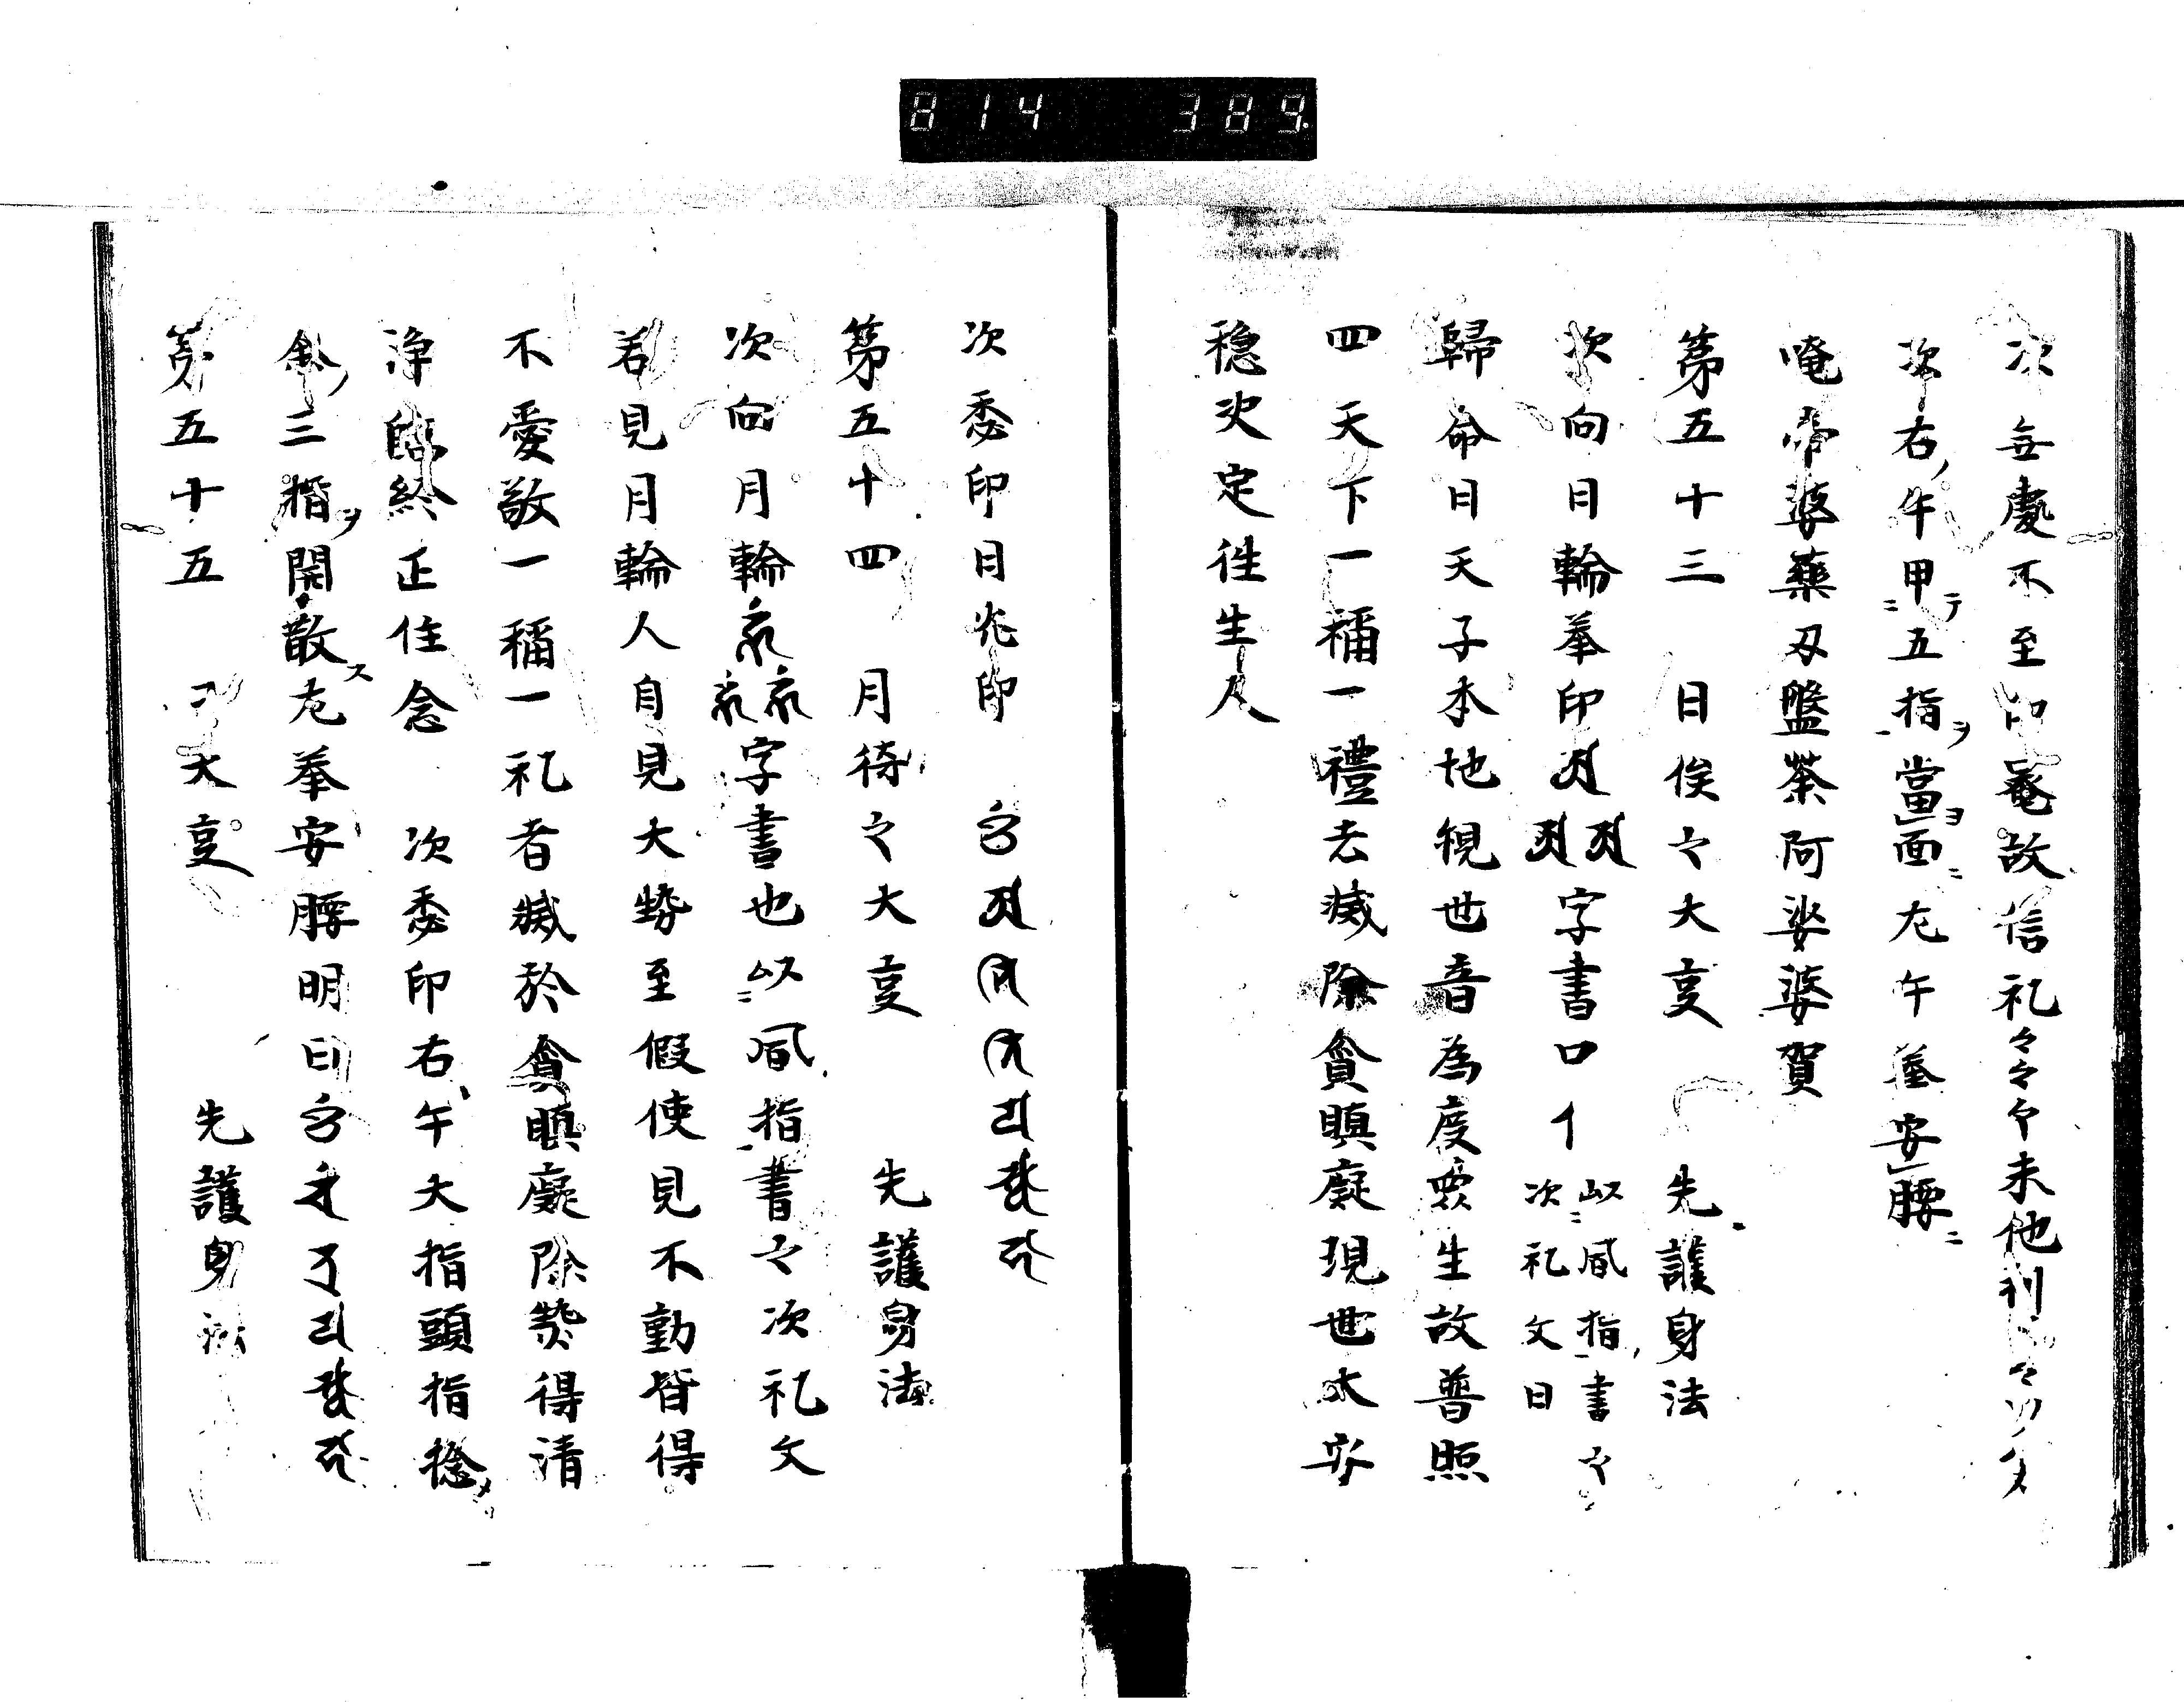 814 389
次無處不至印菴故信礼々々々未他利
次右午甲ニテ五指ヲ當ヨ面ニ左午拳安腰ニ
唵帝婆藥刄盤荼阿娑婆賀
第五十三 日俟之大事 先護身法
次向日輪拳印 字書ロイ 以風指書之
次礼文曰
歸命日天子本地観世音為度衆生故普照
四天下一稱一禮去滅除貪瞋癡現世太安
穏决定徃生人
次秘印日光印
第五十四 月待之大事 先護身法
次向月輪 字書也以ニ風指書之次礼文
若見月輪人自見大勢至假使見不動皆得
不愛敬一稱一礼者滅於貪瞋癡除 得清
浄臨終正住念 次秘印右午大指頭指捻
三指ヲ開散ス左拳安腰明曰
第五十五 大事 先護身法